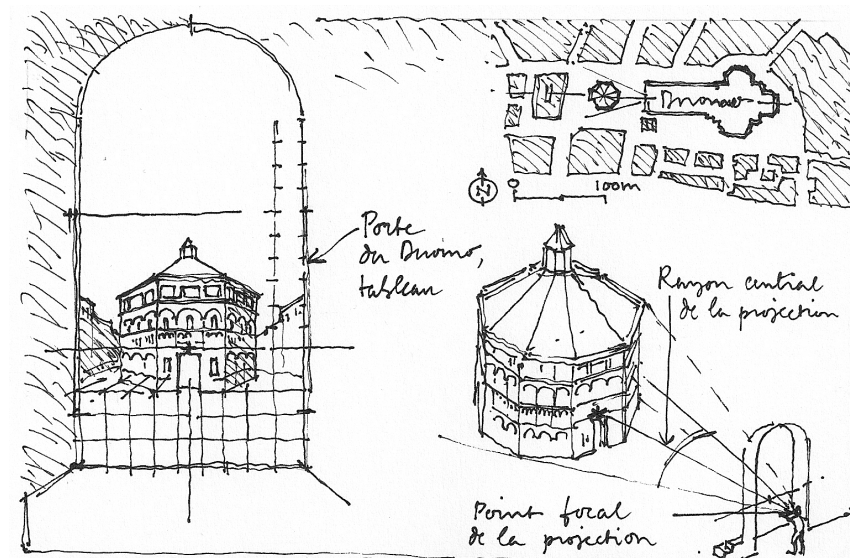 Duomo
0 100m
N
Porte
du Duomo,
tableau
Rayon central
de la projection
Point focal
de la projection